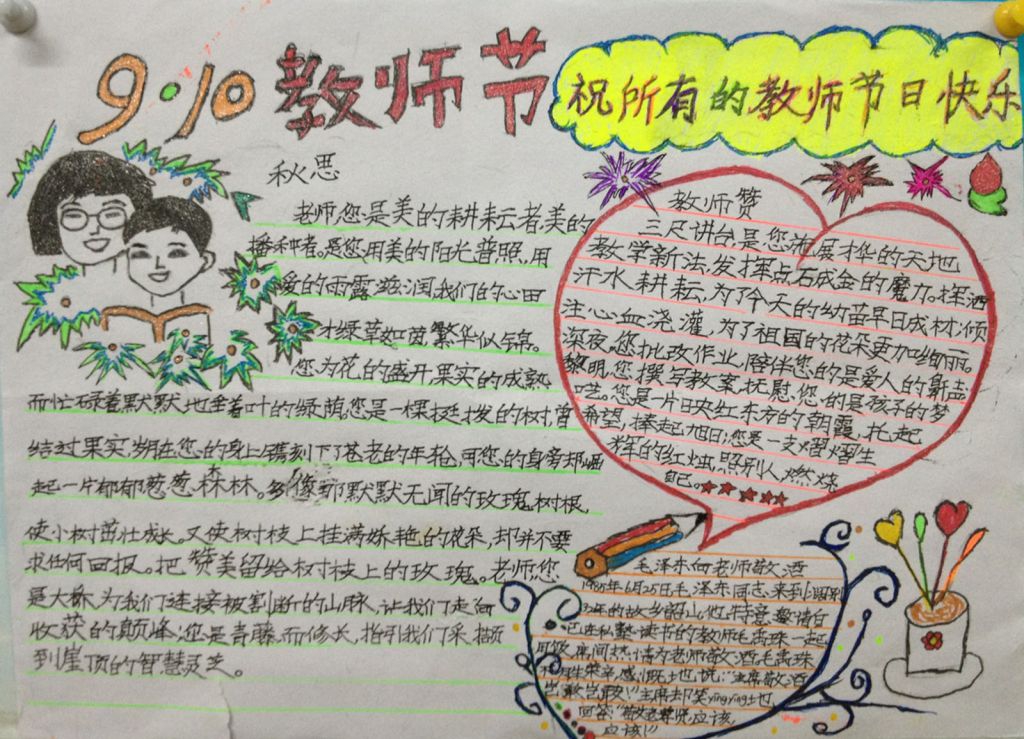 9·10 教师节
祝所有的教师节日快乐
秋思
老师,您是美的耕耘者,美的
播种者。是您用美的阳光普照,用
美的雨露滋润,我们的心田
才绿草如茵,繁华似锦。
您为花的盛开,果实的成熟
而忙碌着,默默地垂着叶的绿荫,您是一棵挺拔的树,曾
结过果实,岁月在您的身上镌刻下了苍老的年轮,可您的身旁却崛
起一片郁郁葱葱森林。您像那默默无闻的玫瑰树根,
使小树茁壮成长。又使树枝上挂满娇艳的花朵,却并不要
求任何回报。把赞美留给树枝上的玫瑰。老师,您
是大桥,为我们连接被割断的山脉,让我们走向
收获的颠峰;您是青藤而修长,指引我们采撷
到崖顶的智慧灵芝。
教师赞
三尺讲台,是您施展才华的天地
教学新法,发挥点石成金的魔力。挥洒
汗水耕耘,为了今天的幼苗早日成材,倾
注心血浇灌,为了祖国的花朵更加绚丽。
深夜,您批改作业,陪伴您的是爱人的鼾声
黎明,您撰写教案,抚慰您的是孩子的梦
呓。您是一片映红东方的朝霞,托起
希望,捧起旭日;您是一支熠熠生
辉的红烛,照别人,燃烧
自己。
毛泽东向老师敬酒
6月25日毛泽东同志来到
年的故乡韶山,他特意邀请自
己在私塾读书的教师毛禹珠一起
用饭,席间热情为老师敬酒,毛禹珠
感慨地说:"主席敬酒
岂敢岂敢!"主席却笑yingying地
回答:"敬老尊贤,应该,
应该!"